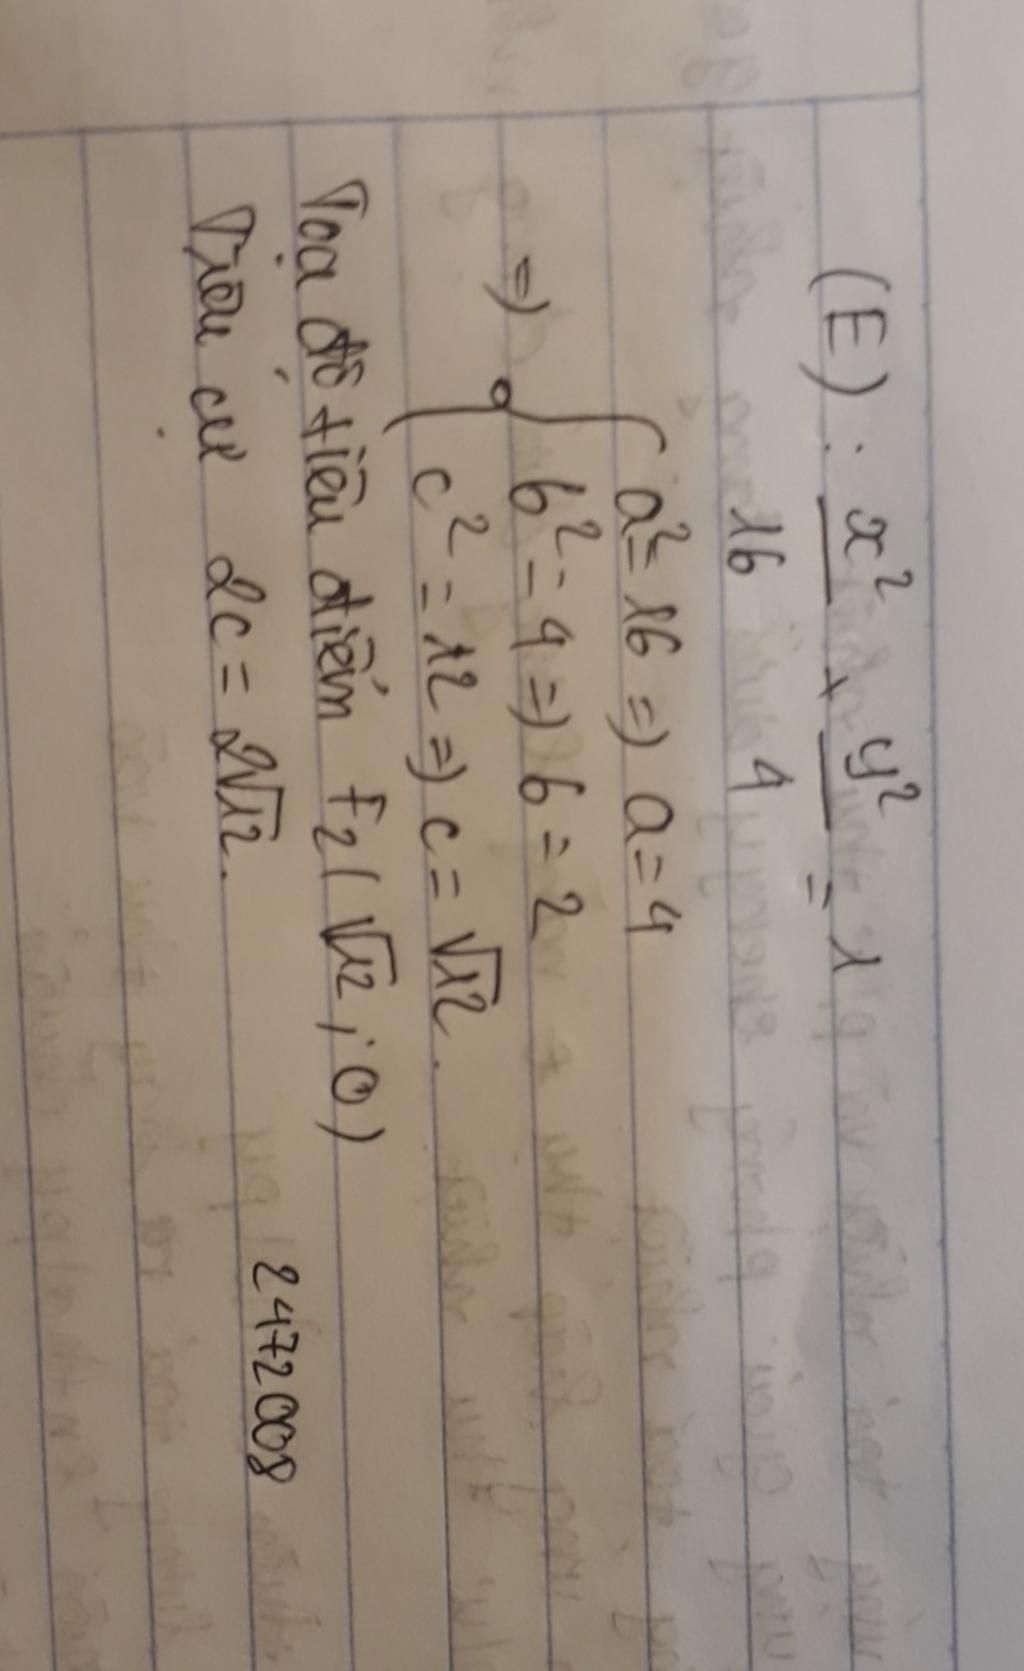 (E) : x²/16 + y²/4 = 1
=> { a² = 16 => a = 4
b² = 4 => b = 2
c² = 12 => c = √12.
Tọa độ tiêu điểm F₂ (√12 ; 0)
Tiêu cự 2c = 2√12.
2472008